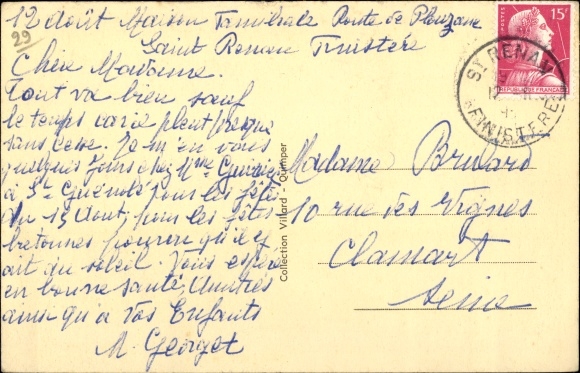 12 août Maison Familiale Route de Plouzane
Saint Renan Finistère
29
Chère Madame.
Tout va bien sauf
le temps varie pleut presque
sans cesse. Je m'en vais
quelques jours chez Mme
à St Guénolé pour les fêtes
du 15 Aout, pour les fêtes
bretonnes pourvu qu'il y
ait du soleil. Vous espère
en bonne santé,
ainsi qu'à vos Enfants
M. Georget
Collection Villard - Quimper
15F
REPUBLIQUE FRANÇAISE
ST RENAN
FINISTERE
Madame Bruvard
10 rue des Vignes
Clamart
Seine